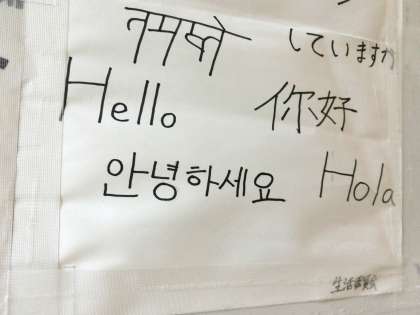 नमस्ते していますか
Hello 你好
안녕하세요 Hola
生活委員会